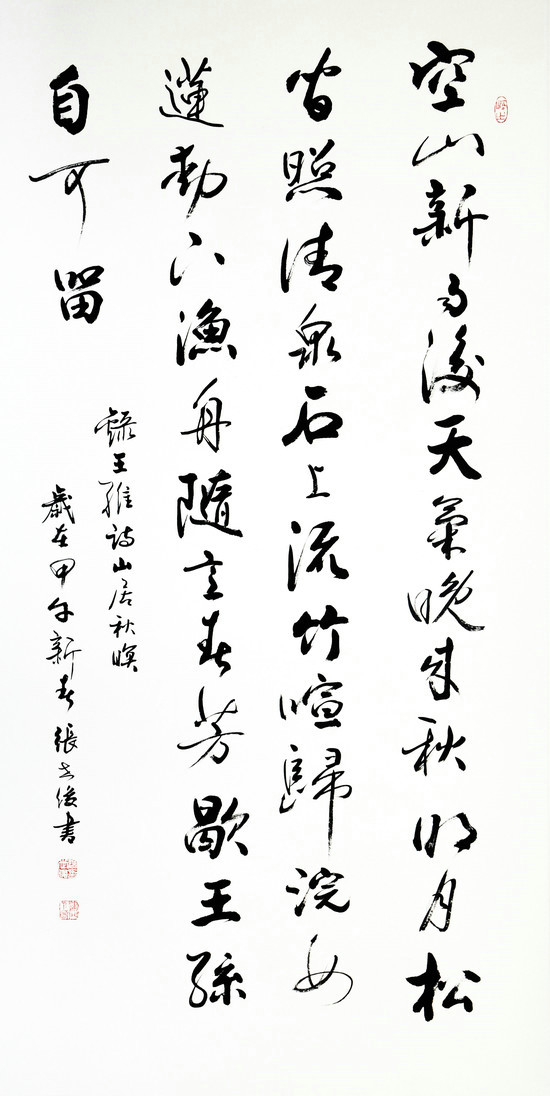 空山新雨後天氣晚來秋明月松
間照清泉石上流竹喧歸浣女
蓮動下漁舟隨意春芳歇王孫
自可留
錄王維詩山居秋暝
歲在甲午新春張俊書